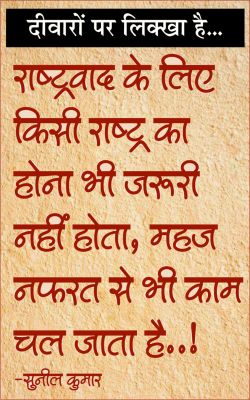 दीवारों पर लिक्खा है...
राष्ट्रवाद के लिए
किसी राष्ट्र का
होना भी जरूरी
नहीं होता, महज
नफरत से भी काम
चल जाता है..!
-सुनील कुमार